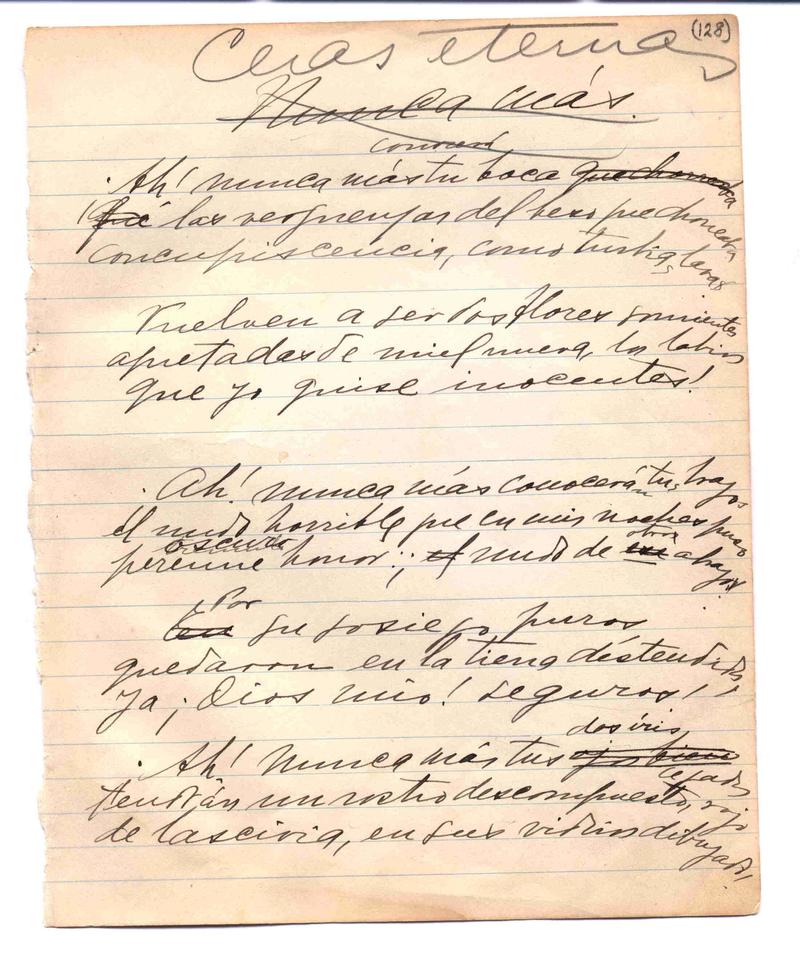 (128)
Ceras eternas
Nunca más.
conocerá
Ah! nunca más tu boca que chorreaba
las vergüenzas del beso que chorreaba
concupiscencia, como turbias lavas
Vuelven a ser dos flores
apretadas de miel nueva, los labios
que yo quise inocentes!
Ah! nunca más conocerán tus brazos
el nudo horrible que en mis noches puso
oscuro otro
perenne horror: ; el nudo de un abrazo!
Por
En su sosiego puros
quedaron en la tierra distendidos,
ya ¡Dios mío! seguros!
dos iris
Ah! Nunca más tus ojos bien
cegados
tendrán un rostro descompuesto, rojo
de lascivia, en sus vidrios dibujado,